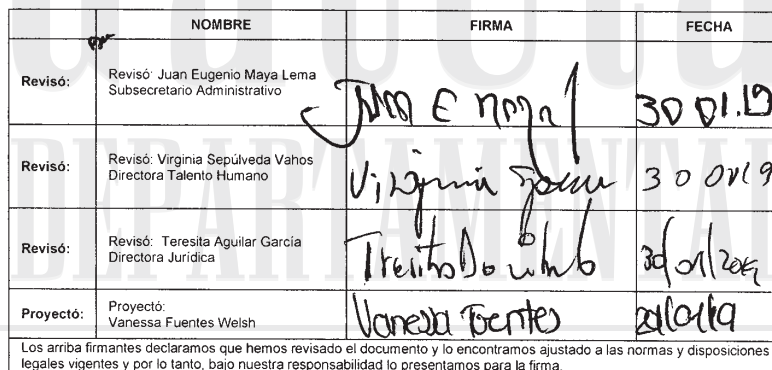 NOMBRE FIRMA FECHA
Revisó: Revisó: Juan Eugenio Maya Lema
Subsecretario Administrativo
Juan E Maya L 30 01.19
Revisó: Revisó: Virginia Sepúlveda Vahos
Directora Talento Humano
Virginia 30 01 19
Revisó: Revisó: Teresita Aguilar García
Directora Jurídica
30/01/2019
Proyectó: Proyectó:
Vanessa Fuentes Welsh
Vanessa Fuentes 29/01/19
Los arriba firmantes declaramos que hemos revisado el documento y lo encontramos ajustado a las normas y disposiciones
legales vigentes y por lo tanto, bajo nuestra responsabilidad lo presentamos para la firma.
DEPARTAMENTAL